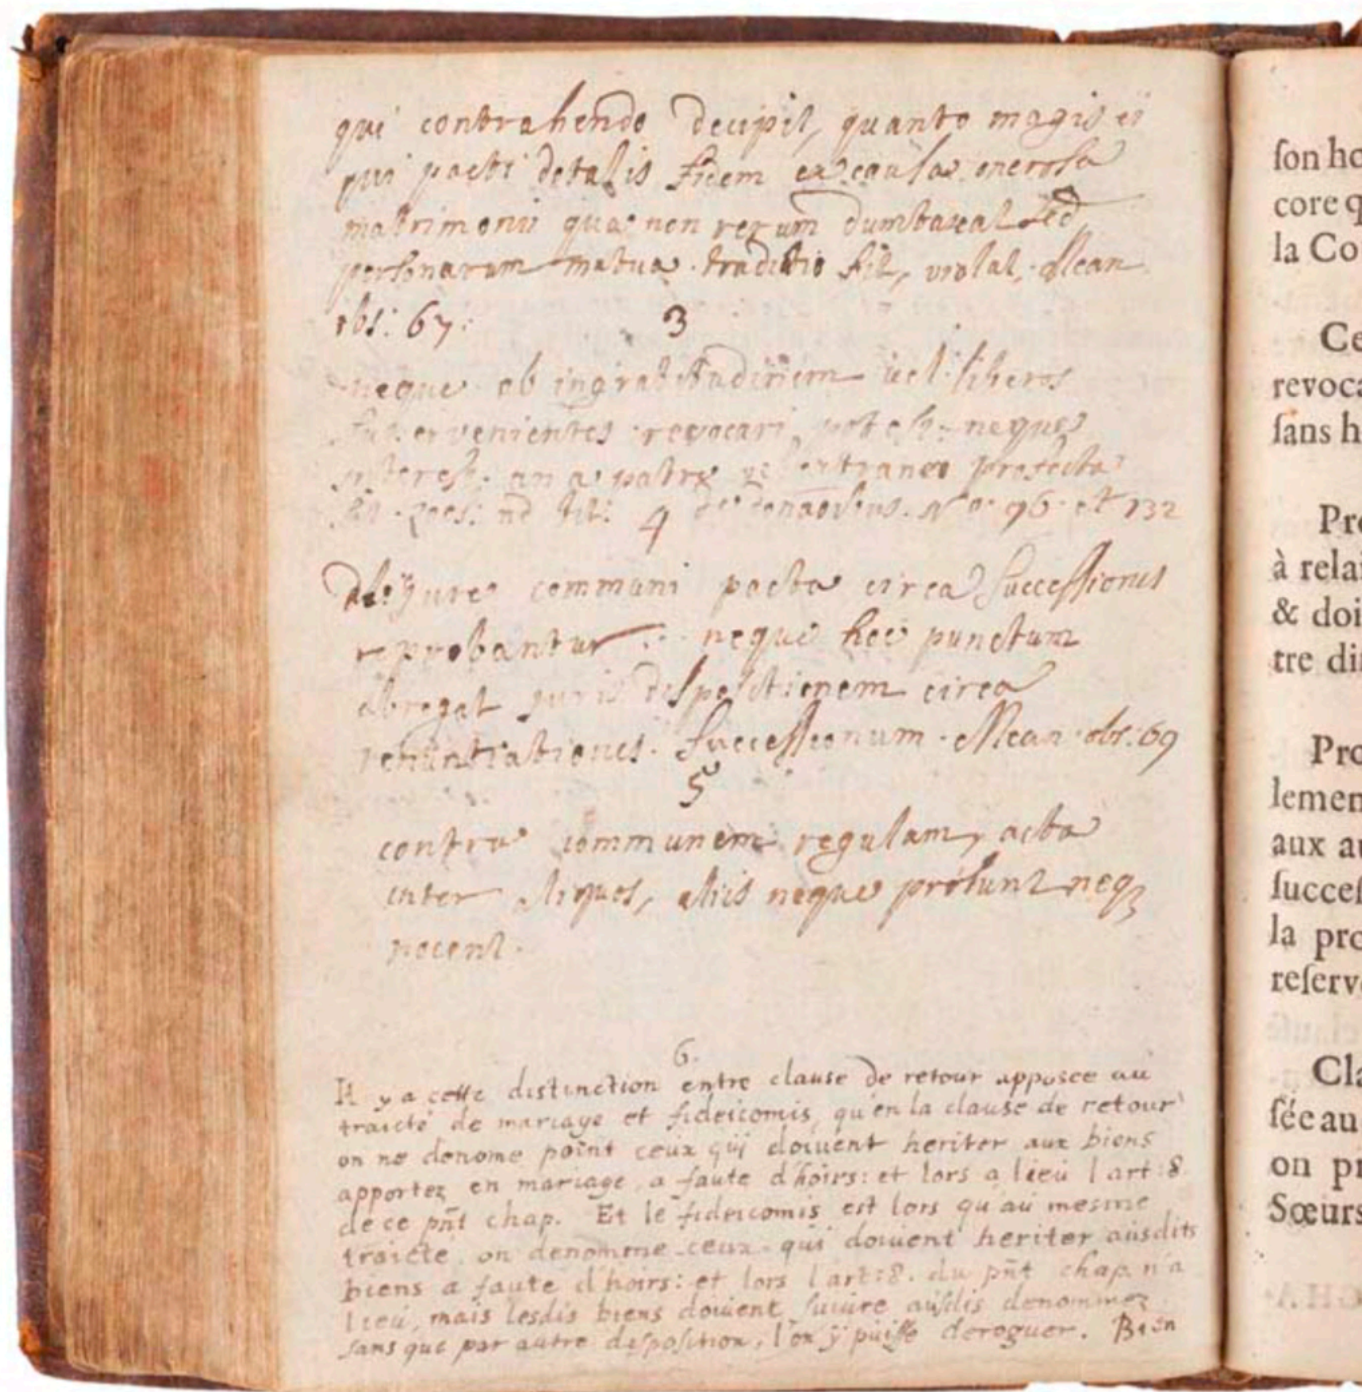 qui contrahendo decipit, quanto magis ei
qui pacti dotalis fidem ex causa onerosa
matrimonii quae non rerum dumtaxat sed
personarum mutua traditio fit, violat. Mean
obs: 67:
3
neque ob ingratitudinem vel liberos
supervenientes revocari potest. neque
interest. an a patre vel extraneo profecta
Zoes: ad tit: de donaôibus. No. 96. et 132
4
De Jure communi pacta circa successiones
reprobantur : neque hoc punctum
abrogat juris dispositionem circa
renuntiationes. successionum. Mean obs. 69
5
contra communem regulam, acta
inter aliquos, aliis neque prosunt neq3
nocent.
6.
Il y a cette distinction entre clause de retour apposee au
traicté de mariage et fideicomis, qu'en la clause de retour
on ne denome point ceux qui doivent heriter aux biens
apportez en mariage a faute d'hoirs: et lors a lieu l'art: 8.
de ce pñt chap. Et le fideicomis est lors qu'au mesme
traicte on denomme ceux qui doivent heriter ausdits
biens a faute d'hoirs: et lors l'art: 8. du pñt chap. n'a
lieu, mais lesdis biens doivent suivre ausdis denommez
sans que par autre disposition, l'on ÿ puisse deroguer. Bien
son ho
core q
la Co
Ce
revoca
sans h
Pro
à relai
& doi
tre di
Pro
lemen
aux au
succes
la pro
reserv
Cla
sée au
on pr
Sœurs